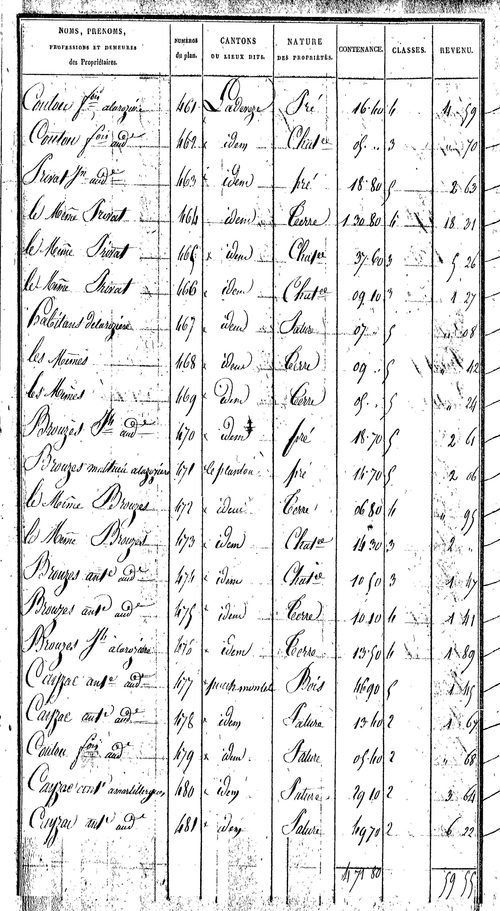 NOMS, PRENOMS, PROFESSIONS ET DEMEURES des Propriétaires. NUMÉROS du plan. CANTONS OU LIEUX DITS. NATURE DES PROPRIÉTÉS. CONTENANCE. CLASSES. REVENU.
Coulou fois alaroziere 461 Pré 16 40 4 4 59
Coulou fois aude 462 idem Chatee 05 .. 3 " 70
Privat Jn aude 463 idem pré 18 80 5 2 63
le Même Privat 464 idem Terre 1 30 80 4 18 31
le Même Privat 465 idem Chatee 37 60 3 5 26
le Même Privat 466 idem Chatee 09 10 3 1 27
habitans delaroziere 467 idem Pature 07 .. 5 " 08
les Mêmes 468 idem Terre 09 .. 5 " 42
les Mêmes 469 idem Terre 05 .. 5 " 24
Brouzes Jh aude 470 idem pré 18 70 5 2 61
Brouzes alaroziere 471 pré 14 70 5 2 06
le Même Brouzes 472 idem Terre 06 80 4 " 95
le Même Brouzes 473 idem Chatee 14 30 3 2 "
Brouzes ante aude 474 idem Chatee 10 50 3 1 47
Brouzes ante aude 475 idem Terre 10 10 4 1 41
Brouzes Jh alaroziere 476 idem Terre 13 50 4 1 89
Cayzac ante aude 477 puech Bois 46 90 5 1 45
Cayzac ante aude 478 idem Pature 13 40 2 1 67
Coulou fois aude 479 idem Pature 05 40 2 " 68
Cayzac 480 idem Pature 29 10 2 3 64
Cayzac ante aude 481 idem Pature 49 70 2 6 22
4 71 80 59 55